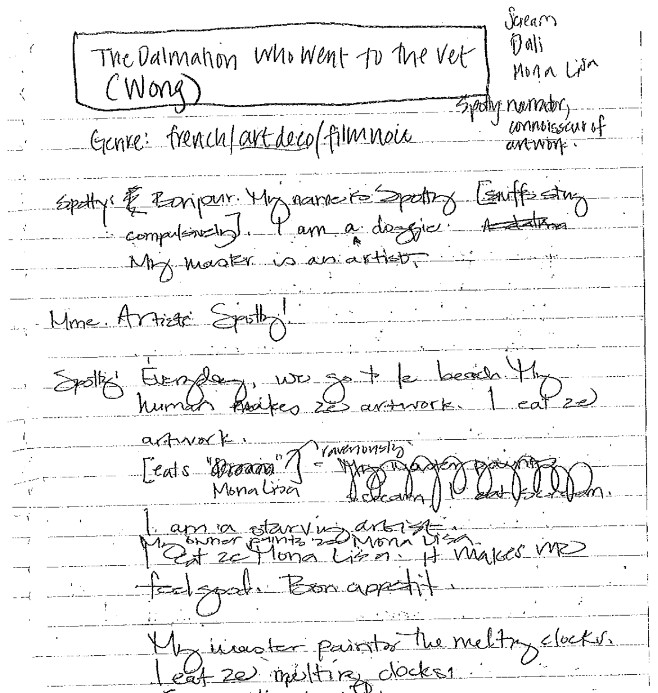 Scream
Dali
Mona Lisa
The Dalmation who went to the vet
(Wong)
Spotty narrator,
connoisseur of
artwork.
Genre: french/art deco/film noir
Spotty: Bonjour. My name is Spotty [sniffs
compulsively]. I am a doggie.
My master is an artist.
Mme. Artiste: Spotty!
Spotty: Everyday, we go to ze beach. My
human makes ze artwork. I eat ze
artwork.
[eats "Scream"] ravenously
Mona Lisa
I eat
I am a starving artist.
My owner paints ze Mona Lisa.
I eat ze Mona Lisa. It makes me
feel good. Bon appetit.
My master paints the melting clocks.
I eat ze melting clocks.